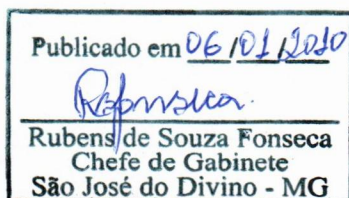 Publicado em 06/01/2010
Rubens de Souza Fonseca
Chefe de Gabinete
São José do Divino - MG